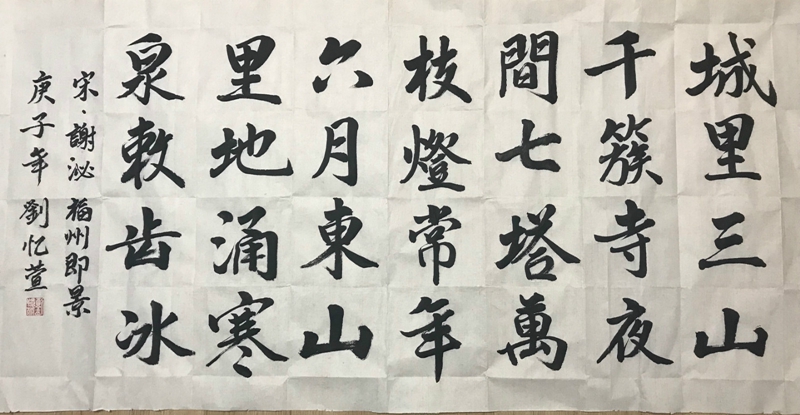 城里三山
千簇寺夜
間七塔萬
枝燈常年
六月東山
里地涌寒
泉敕齿冰
宋·謝泌 福州即景
庚子年 劉忆萱